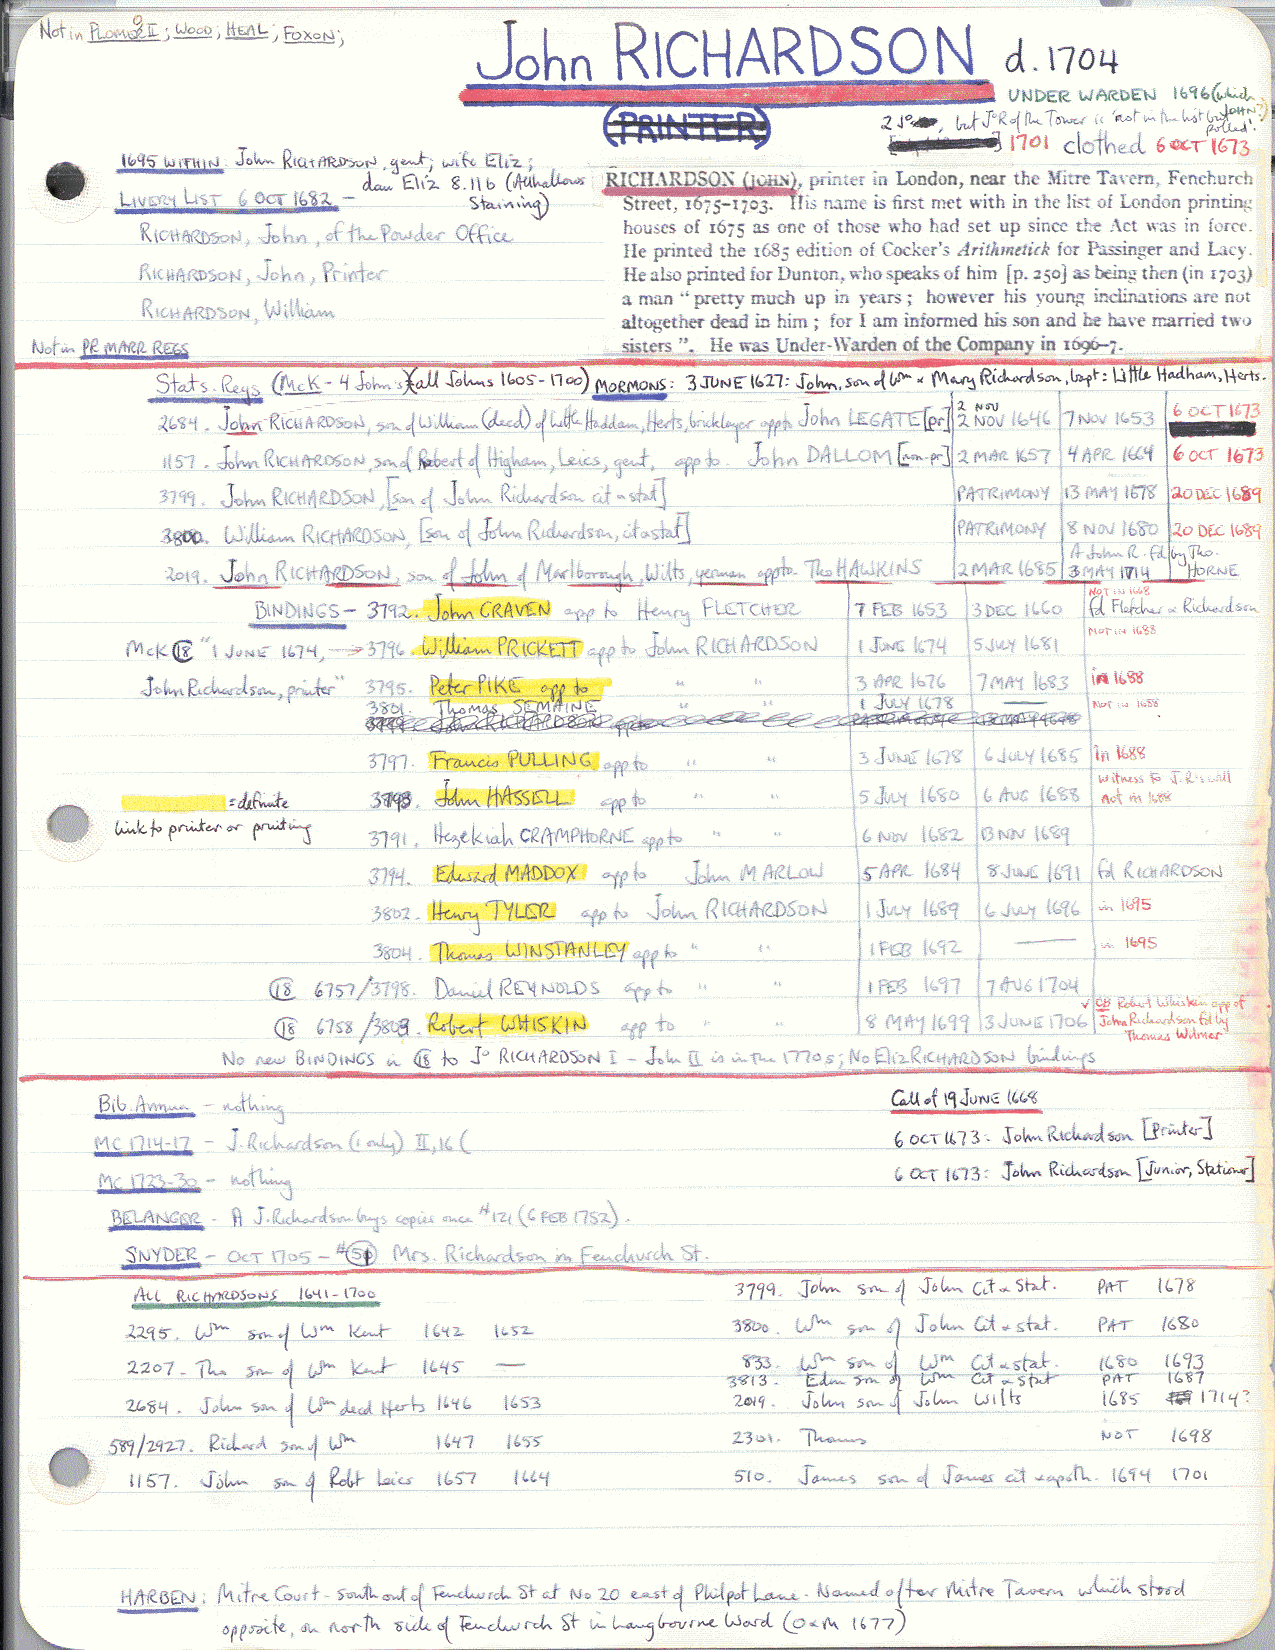 Not in PLOMER II; WOOD; HEAL; FOXON;
John RICHARDSON d. 1704
UNDER WARDEN 1696 (which JOHN?)
(PRINTER)
2 Jos, but Jo R of the Tower is 'not in the list but polled'.
1701 clothed 6 OCT 1673
1695 WITHIN: John RICHARDSON, gent; wife Eliz;
dau Eliz 8.11b (Allhallows Staining)
LIVERY LIST 6 OCT 1682 -
RICHARDSON, John, of the Powder Office
RICHARDSON, John, Printer
RICHARDSON, William
Not in PR MARR REGS
RICHARDSON (JOHN), printer in London, near the Mitre Tavern, Fenchurch
Street, 1675-1703. His name is first met with in the list of London printing
houses of 1675 as one of those who had set up since the Act was in force.
He printed the 1685 edition of Cocker's Arithmetick for Passinger and Lacy.
He also printed for Dunton, who speaks of him [p. 250] as being then (in 1703)
a man "pretty much up in years; however his young inclinations are not
altogether dead in him; for I am informed his son and he have married two
sisters". He was Under-Warden of the Company in 1696-7.
Stats. Regs (McK - 4 John's) (all Johns 1605-1700) MORMONS: 3 JUNE 1627: John, son of Wm & Mary Richardson, bapt: Little Hadham, Herts.
2684. John RICHARDSON, son of William (decd) of Little Haddam, Herts, bricklayer app to John LEGATE [pr] 2 NOV 2 NOV 1646 7 NOV 1653 6 OCT 1673
1157. John RICHARDSON, son of Robert of Higham, Leics, gent, app to. John DALLOM [non-pr] 2 MAR 1657 4 APR 1664 6 OCT 1673
3799. John RICHARDSON, [son of John Richardson cit & stat] PATRIMONY 13 MAY 1678 20 DEC 1689
3800. William RICHARDSON, [son of John Richardson, cit & stat] PATRIMONY 8 NOV 1680 20 DEC 1689
2019. John RICHARDSON, son of John of Marlborough, Wilts, yeoman app to. Tho HAWKINS 2 MAR 1685 3 MAY 1714 A John R. fd by Tho. HORNE
BINDINGS - 3792. John CRAVEN app to Henry FLETCHER 7 FEB 1653 3 DEC 1660 NOT IN 1688 fd Fletcher & Richardson
McK 18 "1 JUNE 1674, → 3796. William PRICKETT app to John RICHARDSON 1 JUNE 1674 5 JULY 1681 NOT IN 1688
John Richardson, printer" 3795. Peter PIKE app to " " 3 APR 1676 7 MAY 1683 in 1688
3801. Thomas SEMAINE " " 1 JULY 1678 — NOT IN 1688
3799. John RICHARDSON app to PATRIMONY 13 MAY 1678
3797. Francis PULLING app to " " 3 JUNE 1678 6 JULY 1685 in 1688
= definite link to printer or printing
3793. John HASSELL app to " " 5 JULY 1680 6 AUG 1688 witness to J.R's will not in 1688
3791. Hezekiah CRAMPHORNE app to " " 6 NOV 1682 13 NOV 1689
3794. Edward MADDOX app to John MARLOW 5 APR 1684 8 JUNE 1691 fd RICHARDSON
3802. Henry TYLER app to John RICHARDSON 1 JULY 1689 6 JULY 1696 in 1695
3804. Thomas WINSTANLEY app to " " 1 FEB 1692 — in 1695
18 6757/3798. Daniel REYNOLDS app to " " 1 FEB 1697 7 AUG 1704
18 6758/3803. Robert WHISKIN app to " " 8 MAY 1699 3 JUNE 1706 ✓ CB Robert Whiskin app of John Richardson fd by Thomas Wilmer
No new BINDINGS in 18 to Jo RICHARDSON I - John II is in the 1770s; No Eliz RICHARDSON bindings
Bib. Annua - nothing
MC 1714-17 - J. Richardson (1 only) II, 16 (
MC 1723-30 - nothing
BELANGER - A J. Richardson buys copies once #121 (6 FEB 1752).
SNYDER - OCT 1705 - #51 Mrs. Richardson in Fenchurch St.
Call of 19 JUNE 1668
6 OCT 1673: John Richardson [Printer]
6 OCT 1673: John Richardson [Junior, Stationer]
ALL RICHARDSONS 1641-1700
2295. Wm son of Wm Kent 1642 1652
2207. Tho son of Wm Kent 1645 —
2684. John son of Wm decd Herts 1646 1653
589/2927. Richard son of Wm 1647 1655
1157. John son of Robt Leics 1657 1664
3799. John son of John Cit & Stat. PAT 1678
3800. Wm son of John Cit & stat. PAT 1680
833. Wm son of Wm Cit & stat. 1680 1693
3813. Edm son of Wm Cit & Stat PAT 1687
2019. John son of John Wilts 1685 1714?
2301. Thomas NOT 1698
510. James son of James cit & apoth. 1694 1701
HARBEN: Mitre Court - south out of Fenchurch St at No 20 east of Philpot Lane. Named after Mitre Tavern which stood
opposite, on north side of Fenchurch St in Langbourne Ward (O & M 1677)